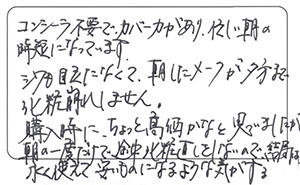 コンシーラ不要でカバー力があり、忙しい朝の
時短になっています。
シワが目立たなくて、朝したメークが夕方まで
化粧崩れしません。
購入時に、ちょっと高価かなと思いましたが
朝の一度だけで、途中化粧直ししないので、結局は、
永く使えて安いものになるような気がする